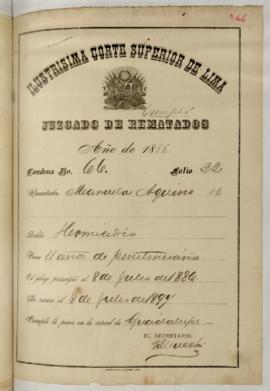 246
ILUSTRISIMA CORTE SUPERIOR DE LIMA
Cumplió
JUZGADO DE REMATADOS
Año de 1886.
Condena No. 66. Folio 22
Rematado Manuela Aquino
Delito Homicidio
Pena 11 años de penitenciaria
El plazo principió el 8 de Julio de 1886.
Se vence el 8 de Julio de 1897
Cumple la pena en la carcel de Guadalupe
EL SECRETARIO,